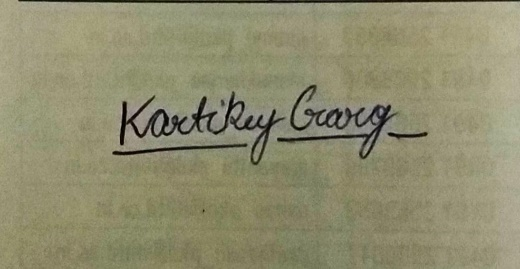 Kartikey Garg